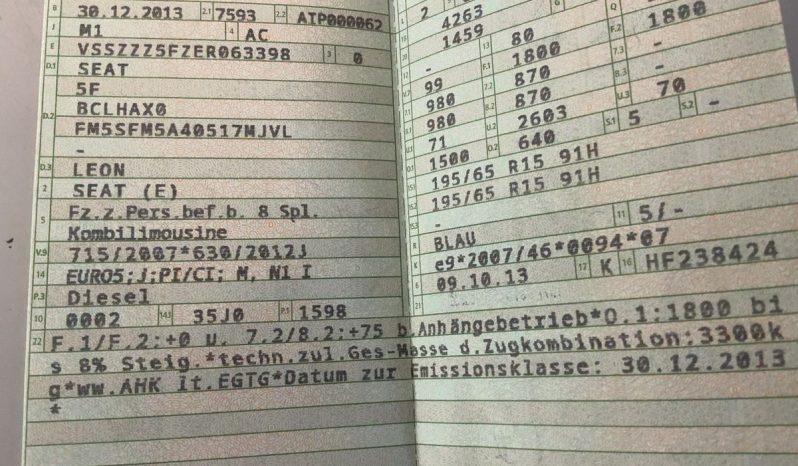 B 30.12.2013 2.1 7593 2.2 AIP000062
J M1 4 AC
E VSSZZZ5FZER063398 3 0
D.1 SEAT
5F
D.2 BCLHAX0
FM5SFM5A40517MJVL
-
D.3 LEON
2 SEAT (E)
5 Fz.z.Pers.bef.b. 8 Spl.
Kombilimousine
V.9 715/2007*630/2012J
14 EURO5;J;PI/CI; M, N1 I
P.3 Diesel
10 0002 14.1 35J0 P.1 1598
L 2
18 4263
19 1459
-
13 80 Q -
99 F.1 1800 F.2 1800
980 7.2 870 7.3 -
980 8.2 870 8.3 -
U.1 71 U.2 2603 U.3 70
O.1 1500 O.2 640 S.1 5 S.2 -
15.1 195/65 R15 91H
15.2 195/65 R15 91H
15.3 -
R BLAU 11 5/-
K e9*2007/46*0094*07
6 09.10.13 17 K 16 HF238424
21
22 F.1/F.2:+0 u. 7.2/8.2:+75 b.Anhängebetrieb*O.1:1800 bi
s 8% Steig.*techn.zul.Ges-Masse d.Zugkombination:3300k
g*ww.AHK lt.EGTG*Datum zur Emissionsklasse: 30.12.2013
*